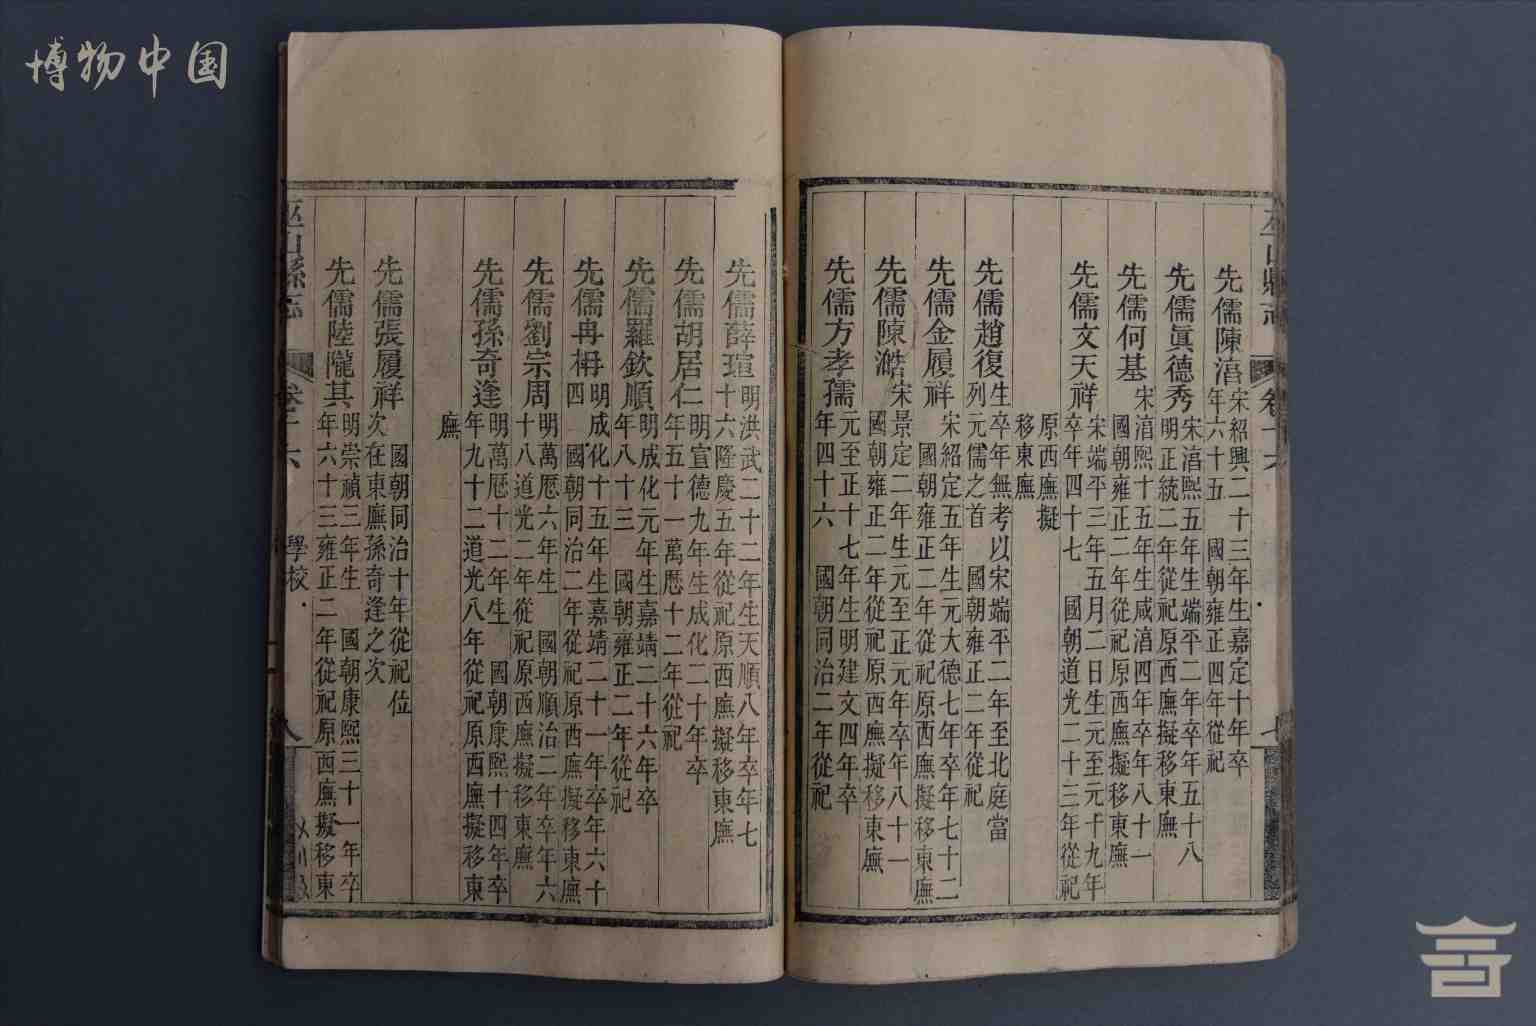 巫山縣志 卷十六 七
先儒陳湻 宋紹興二十三年生嘉定十年卒
年六十五 國朝雍正四年從祀
先儒眞德秀 宋湻熙五年生端平二年卒年五十八
明正統二年從祀原西廡擬移東廡
先儒何基 宋湻熙十五年生咸湻四年卒年八十一
國朝雍正二年從祀原西廡擬移東廡
先儒文天祥 宋端平三年五月二日生元至元十九年
卒年四十七 國朝道光二十三年從祀
原西廡擬
移東廡
先儒趙復 生卒年無考以宋端平二年至北庭當
列元儒之首 國朝雍正二年從祀
先儒金履祥 宋紹定五年生元大德七年卒年七十二
國朝雍正二年從祀原西廡擬移東廡
先儒陳澔 宋景定二年生元至正元年卒年八十一
國朝雍正二年從祀原西廡擬移東廡
先儒方孝孺 元至正十七年生明建文四年卒
年四十六 國朝同治二年從祀
先儒薛瑄 明洪武二十二年生天順八年卒年七
十六隆慶五年從祀原西廡擬移東廡
先儒胡居仁 明宣德九年生成化二十年卒
年五十一萬厯十二年從祀
先儒羅欽順 明成化元年生嘉靖二十六年卒
年八十三 國朝雍正二年從祀
先儒冉柟 明成化十五年生嘉靖二十一年卒年六十
四 國朝同治二年從祀原西廡擬移東廡
先儒劉宗周 明萬厯六年生 國朝順治二年卒年六
十八道光二年從祀原西廡擬移東廡
先儒孫奇逢 明萬厯十二年生 國朝康熙十四年卒
年九十二道光八年從祀原西廡擬移東
廡
先儒張履祥 國朝同治十年從祀位
次在東廡孫奇逢之次
先儒陸隴其 明崇禎三年生 國朝康熙三十一年卒
年六十三雍正二年從祀原西廡擬移東
巫山縣志 卷十六 學校 八
博物中国